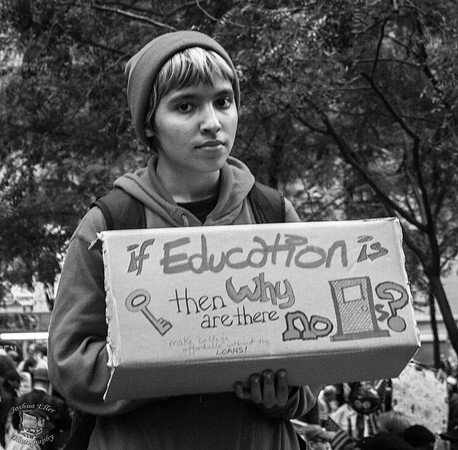 if Education is
then Why
are there no s?
make college
affordable without the
LOANS!
Joshua Eller
Photography